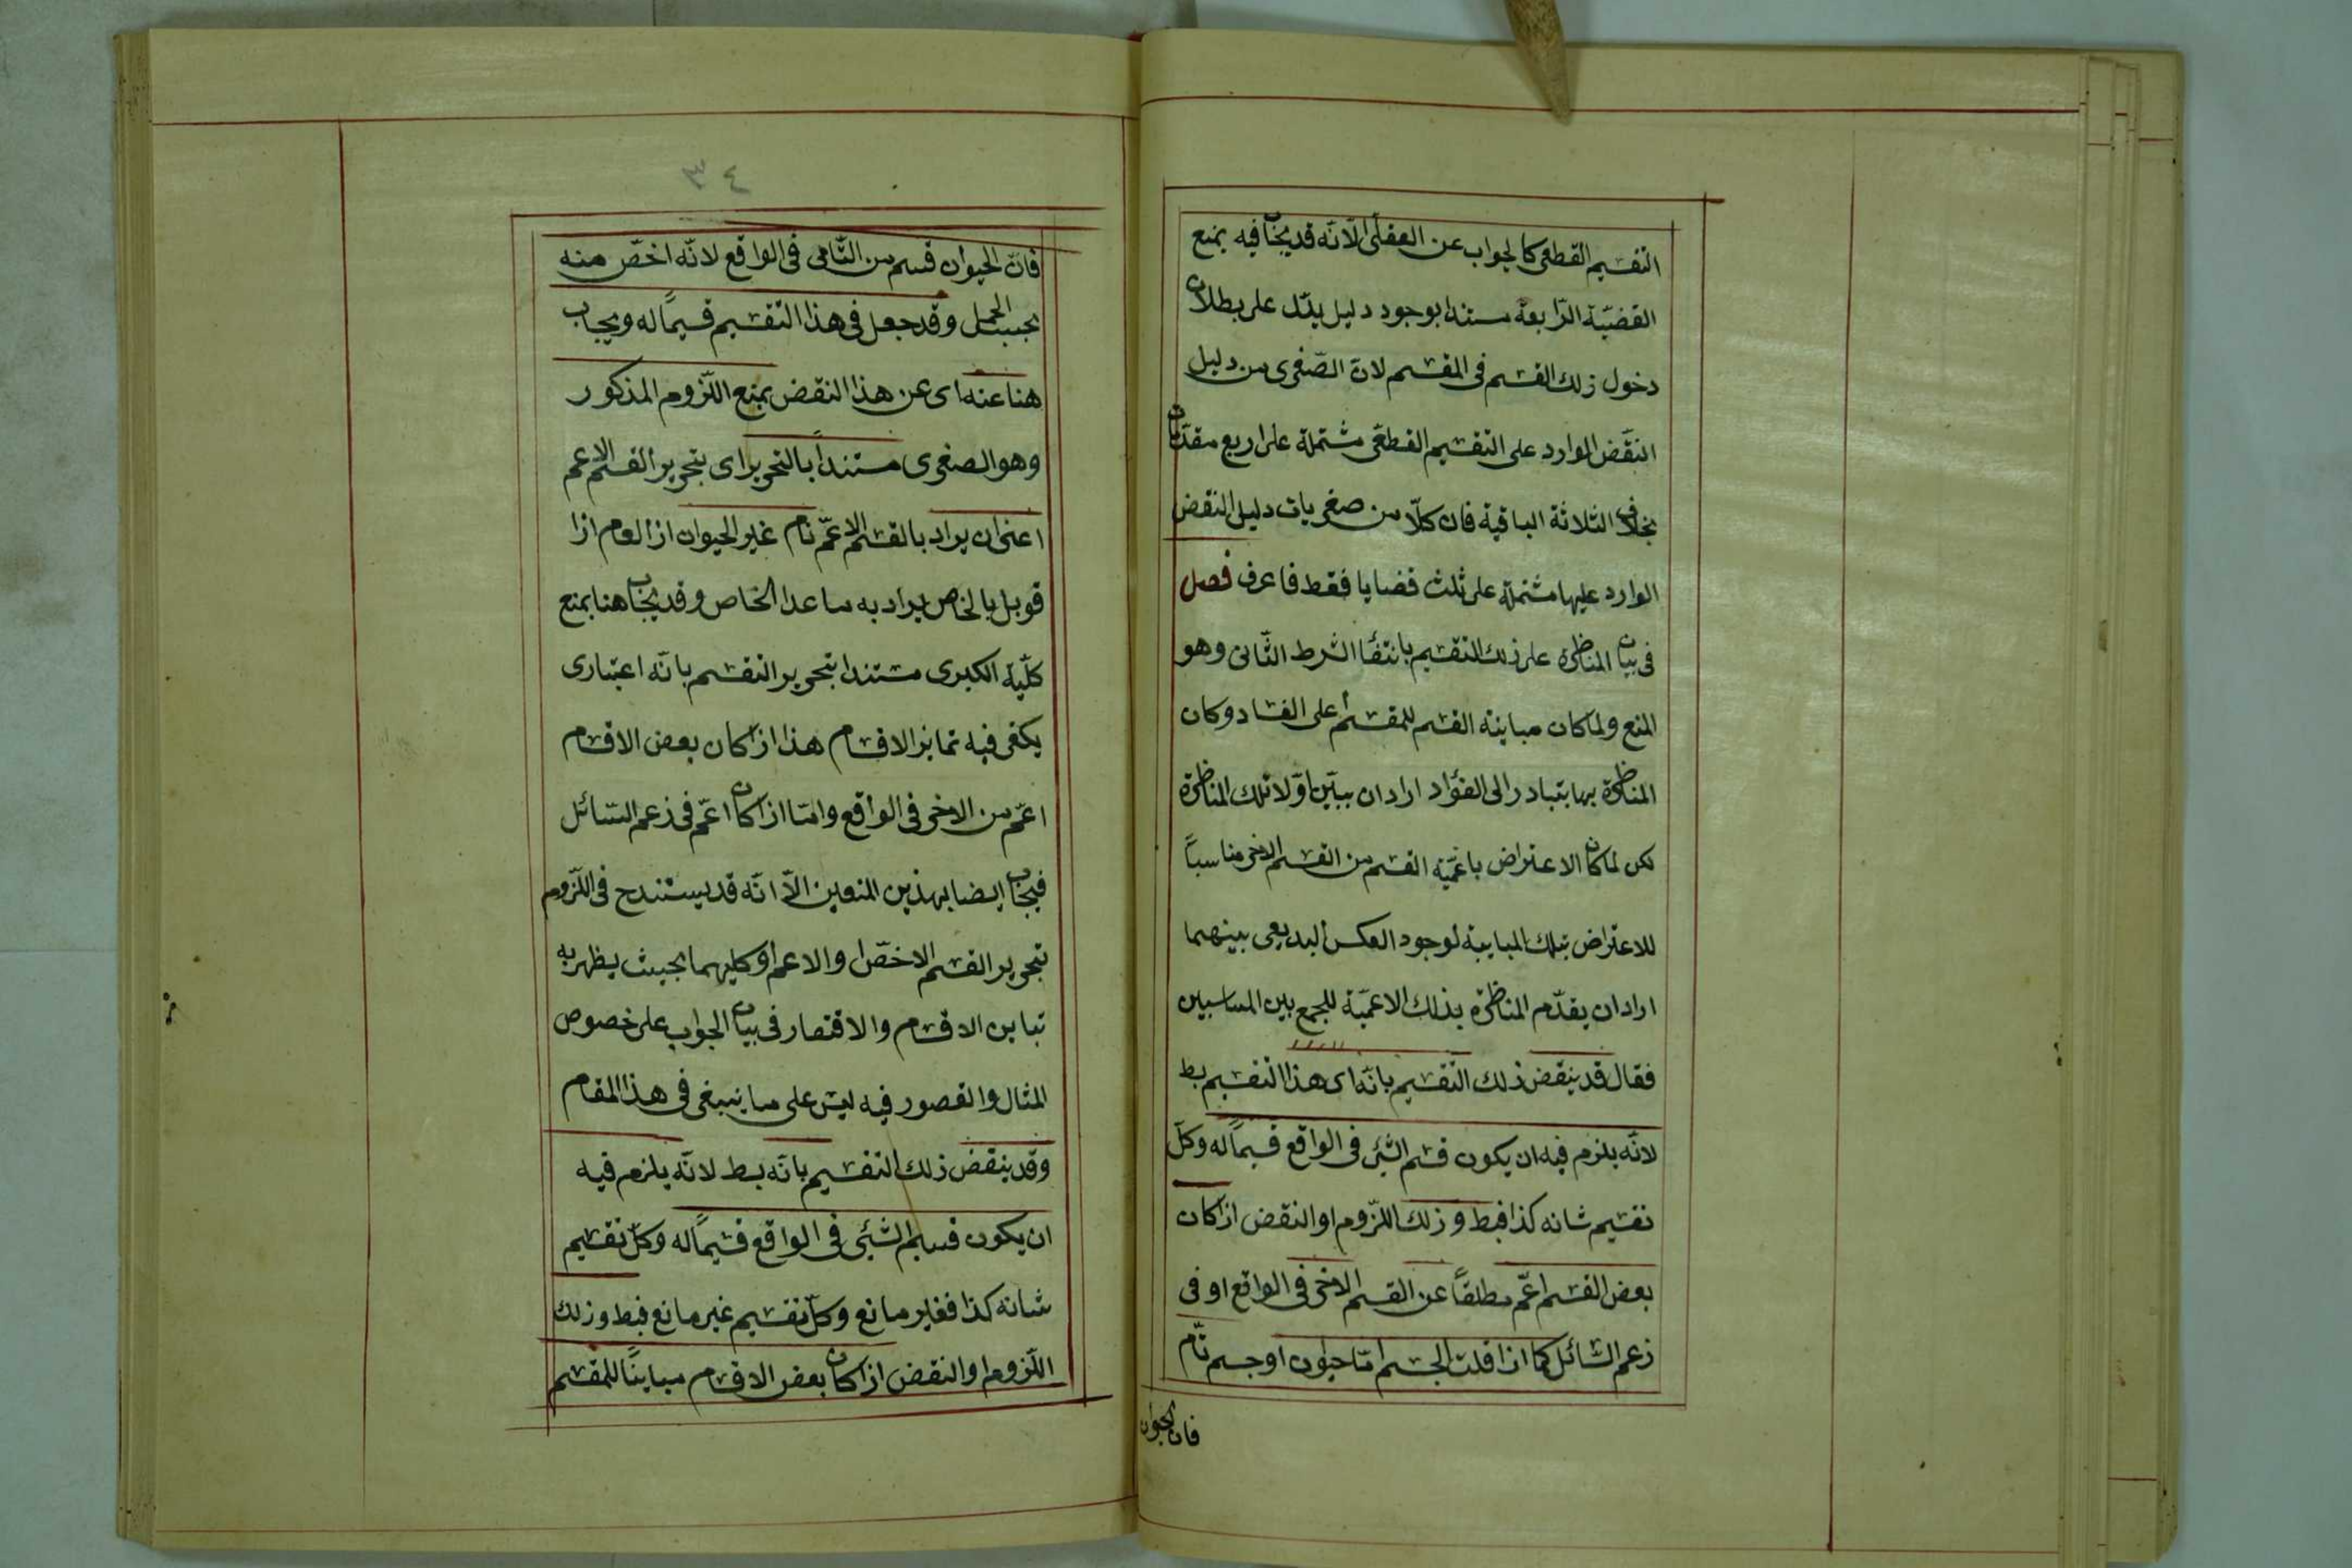 التقسيم القطعى كالجواب عن العقلى الّا انّه قد يجاب فيه بمنع
القضيّة الرّابعة مستندا بوجود دليل يدّل على بطلان
دخول ذلك القسم فى المقسم لانّ الصّغرى من دليل
النقّض الوارد على التقسيم القطعّى مشتملة على اربع مقدّمات
بخلاف الثلاثة الباقية فان كلّا من صغريات دليل النقض
الوارد عليها مشتملة على ثلث قضايا فقط فاعرف فصل
فى بيان المناظرة على ذلك التقسيم بانتفاء الشرط الثّانى وهو
المنع ولما كان مباينة القسم للمقسم أعلى الفساد وكان
المناظرة بها يتبادر الى الفؤاد اراد ان يبيّن اوّلا تلك المناظرة
لكن لما كان الاعتراض باعمّية القسم من القسم الاخر مناسباً
للاعتراض بتلك المباينة لوجود العكس البديعى بينهما
اراد ان يقدّم المناظرة بذلك الاعميّة للجمع بين المناسبين
فقال قد ينقض ذلك التقسيم بانّه اى هذا التقسيم بط
لانّه يلزم فيه ان يكون قسم الشئ فى الواقع قسيماً له وكلّ
تقسيم شانه كذا فبط وذلك اللزوم او النقض اذا كان
بعض القسم اعّم مطلقاً عن القسم الاخر فى الواقع او فى
زعم السّائل كما اذا قلت الجسم امّا حيوان او جسم نّام
فان الحيوان
٣٤
فانّ الحيوان قسم من النّامى فى الواقع لانّه اخصّ منه
بحسب الحمل وقد جعل فى هذا التقسيم قسيماً له ويجاب
هنا عنه اى عن هذا النقض بمنع اللّزوم المذكور
وهو الصغرى مستنداً بالتحرير اى بتحرير القسم الاعم
اعنى ان يراد بالقسم الاعمّ نام غير الحيوان اذ العام اذا
قوبل بالخاص يراد به ما عدا الخاص وقد يجاب هنا بمنع
كلّية الكبرى مستندا بتحرير التقسيم بانّه اعتبارى
يكفى فيه تمايز الاقسام هذا اذا كان بعض الاقسام
اعّم من الاخر فى الواقع وامّا اذا كان اعّم فى زعم السّائل
فيجاب ايضا بهذين المنعين الّا انّه قد يستند ح فى اللّزوم
بتحرير القسم الاخصّ او الاعم او كليهما بحيث يظهر به
تباين الاقسام والاقتصار فى بيان الجواب على خصوص
المثال والقصور فيه ليس على ما ينبغى فى هذا المقام
وقد ينقض ذلك التقسيم بانّه بط لانّه يلزم فيه
ان يكون قسيم الشئى فى الواقع قسيماً له وكلّ تقسيم
شانه كذا فغير مانع وكلّ تقسيم غير مانع فبط وذلك
اللّزوم او النقض اذا كان بعض الاقسام مبايناً للمقسم